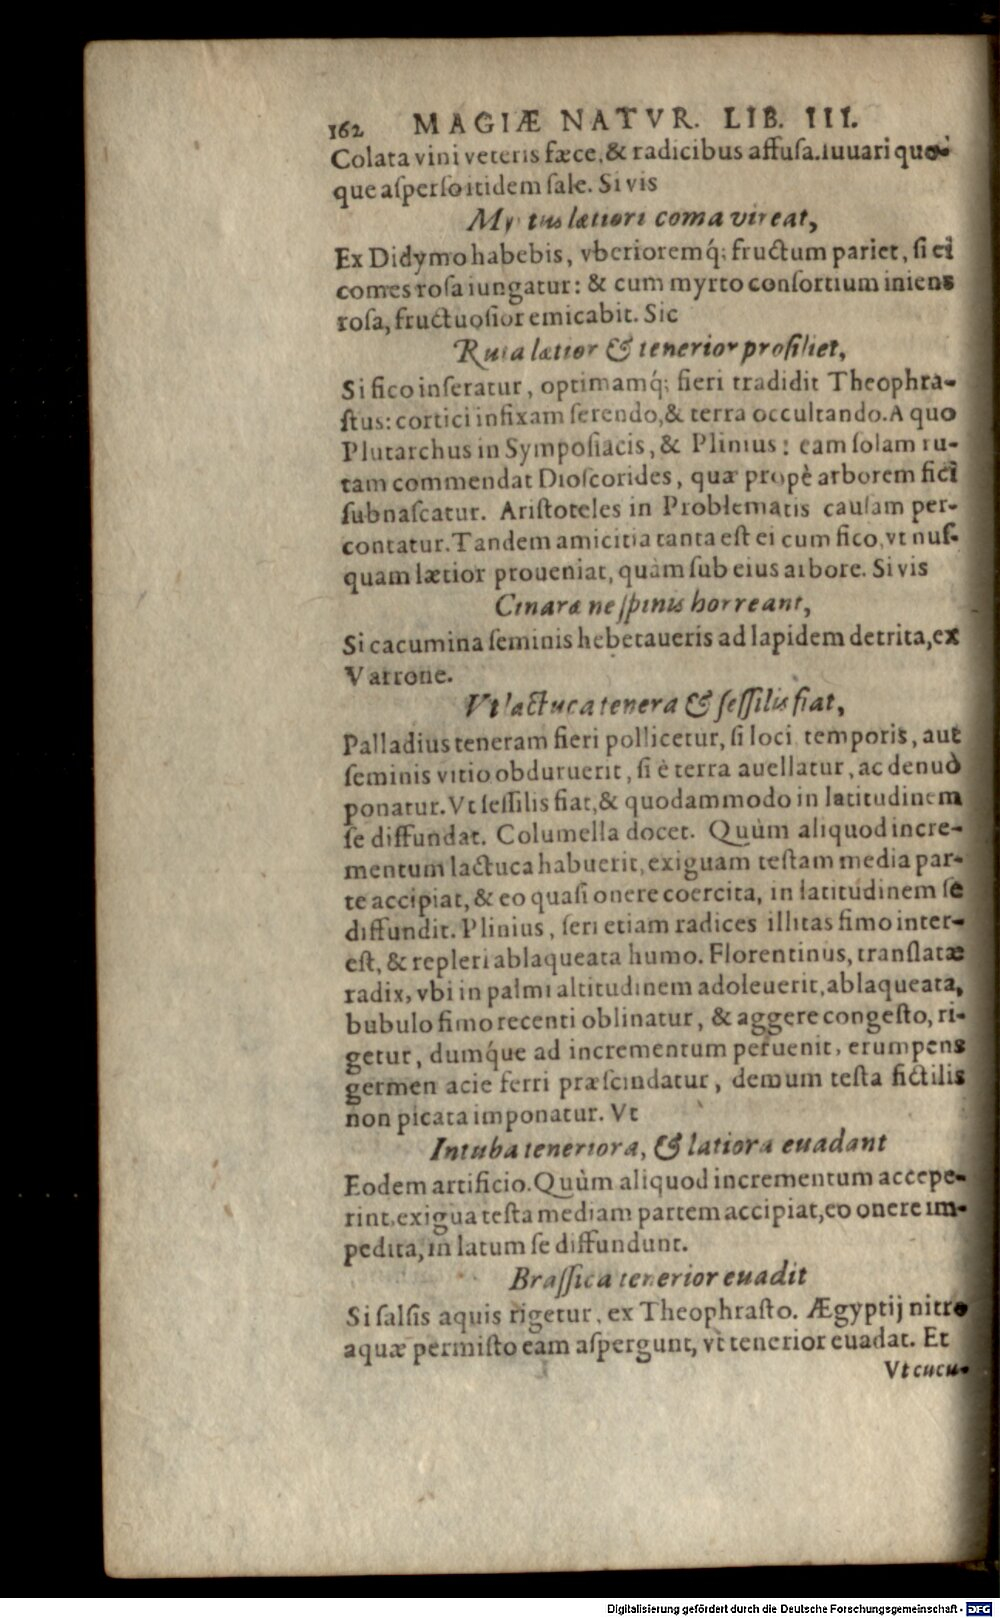 162 MAGIÆ NATVR. LIB. III.
Colata vini veteris fæce, & radicibus affusa. iuuari quo-
que asperso itidem sale. Si vis
Myrtus lætiori coma vireat,
Ex Didymo habebis, vberioremq́; fructum pariet, si ei
comes rosa iungatur: & cum myrto consortium iniens
rosa, fructuosior emicabit. Sic
Ruta lætior & tenerior prosiliet,
Si fico inseratur, optimamq́; fieri tradidit Theophra-
stus: cortici infixam serendo, & terra occultando. A quo
Plutarchus in Symposiacis, & Plinius: eam solam ru-
tam commendat Dioscorides, quæ propè arborem fici
subnascatur. Aristoteles in Problematis causam per-
contatur. Tandem amicitia tanta est ei cum fico, vt nus-
quam lætior proueniat, quàm sub eius arbore. Si vis
Cinaræ ne spinis horreant,
Si cacumina seminis hebetaueris ad lapidem detrita, ex
Varrone.
Vt lactuca tenera & sessilis fiat,
Palladius teneram fieri pollicetur, si loci temporis, aut
seminis vitio obduruerit, si è terra auellatur, ac denuò
ponatur. Vt sessilis fiat, & quodammodo in latitudinem
se diffundat. Columella docet. Quùm aliquod incre-
mentum lactuca habuerit, exiguam testam media par-
te accipiat, & eo quasi onere coercita, in latitudinem se
diffundit. Plinius, seri etiam radices illitas fimo inter-
est, & repleri ablaqueata humo. Florentinus, translatæ
radix, vbi in palmi altitudinem adoleuerit, ablaqueata,
bubulo fimo recenti oblinatur, & aggere congesto, ri-
getur, dumq́ue ad incrementum peruenit, erumpens
germen acie ferri præscindatur, demum testa fictilis
non picata imponatur. Vt
Intuba teneriora, & latiora euadant
Eodem artificio. Quùm aliquod incrementum accepe-
rint, exigua testa mediam partem accipiat, eo onere im-
pedita, in latum se diffundunt.
Brassica tenerior euadit
Si salsis aquis rigetur, ex Theophrasto. Ægyptij nitro
aquæ permisto eam aspergunt, vt tenerior euadat. Et
Vt cucu-
Digitalisierung gefördert durch die Deutsche Forschungsgemeinschaft - DFG